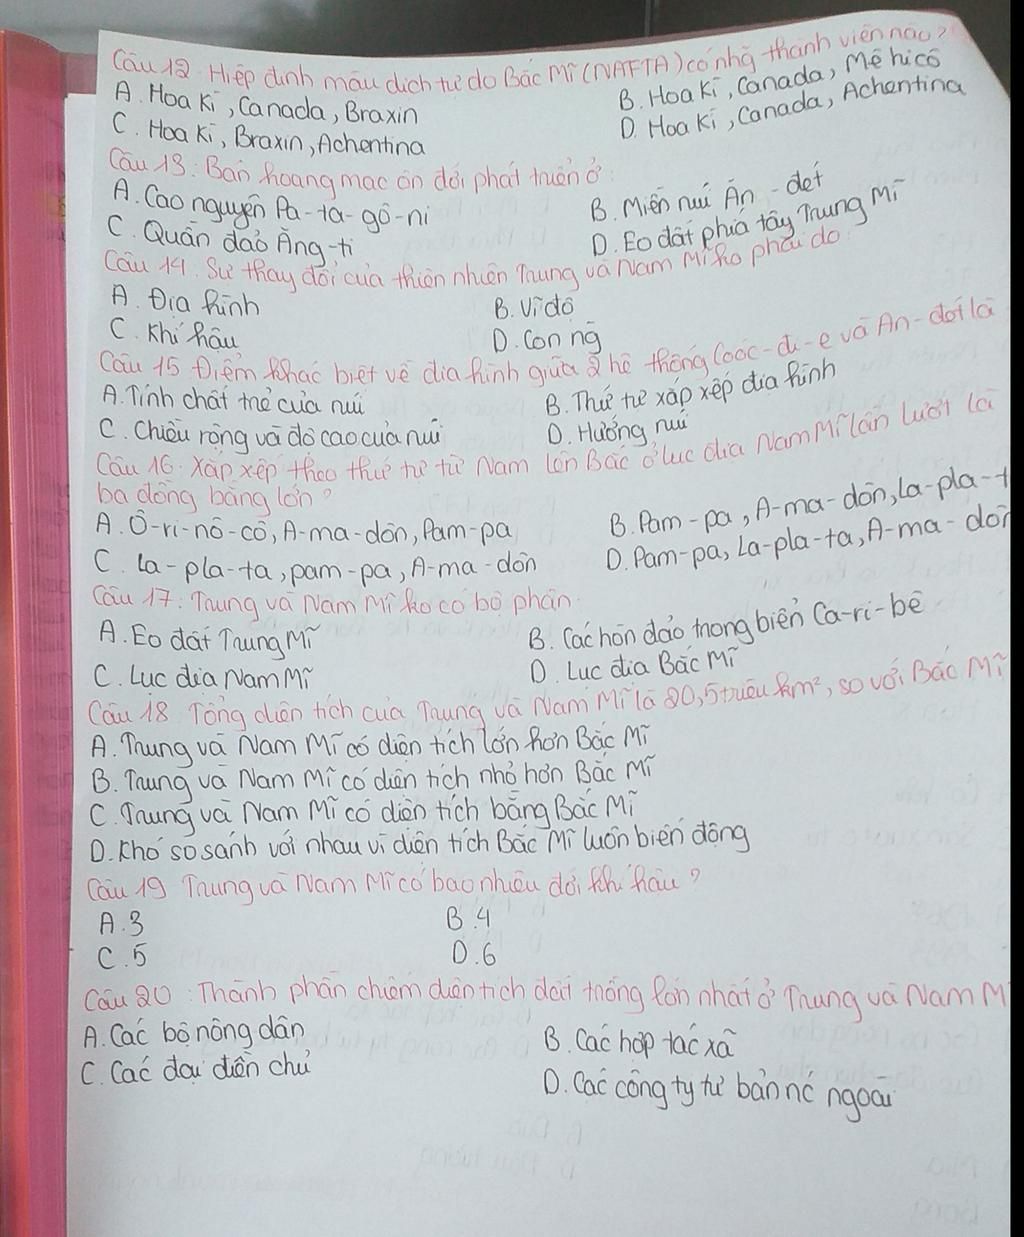 Câu 12. Hiệp định mậu dịch tự do Bắc Mĩ (NAFTA) có nhg̃ thành viên nào?
A. Hoa Kì, Canada, Braxin B. Hoa Kì, Canada, Mê hi cô
C. Hoa Kì, Braxin, Achentina D. Hoa Kì, Canada, Achentina
Câu 13: Bán hoang mạc ôn đới phát triển ở:
A. Cao nguyên Pa-ta-gô-ni B. Miền núi An-đét
C. Quần đảo Ăng-ti D. Eo đất phía tây Trung Mĩ
Câu 14. Sự thay đổi của thiên nhiên Trung và Nam Mĩ ko phải do:
A. Địa hình B. Vĩ độ
C. Khí hậu D. Con ng̀
Câu 15 Điểm khác biệt về địa hình giữa 2 hệ thống Cooc-đi-e và An-đét là
A. Tính chất trẻ của núi B. Thứ tự xắp xếp địa hình
C. Chiều rộng và độ cao của núi D. Hướng núi
Câu 16: Xắp xếp theo thứ tự từ Nam lên Bắc ở lục địa Nam Mĩ lần lượt là
ba đồng bằng lớn?
A. Ô-ri-nô-cô, A-ma-dôn, Pam-pa B. Pam-pa, A-ma-dôn, La-pla-t
C. La-pla-ta, pam-pa, A-ma-dôn D. Pam-pa, La-pla-ta, A-ma-dôn
Câu 17: Trung và Nam Mĩ ko có bộ phận:
A. Eo đất Trung Mĩ B. Các hòn đảo trong biển Ca-ri-bê
C. Lục địa Nam Mĩ D. Lục địa Bắc Mĩ
Câu 18 Tổng diện tích của Trung và Nam Mĩ là 20,5 triệu km², so với Bắc Mĩ
A. Trung và Nam Mĩ có diện tích lớn hơn Bắc Mĩ
B. Trung và Nam Mĩ có diện tích nhỏ hơn Bắc Mĩ
C. Trung và Nam Mĩ có diện tích bằng Bắc Mĩ
D. Khó so sánh với nhau vì diện tích Bắc Mĩ luôn biến động
Câu 19 Trung và Nam Mĩ có bao nhiêu đới khí hậu?
A. 3 B. 4
C. 5 D. 6
Câu 20: Thành phần chiếm diện tích đất trồng lớn nhất ở Trung và Nam M
A. Các bộ nông dân B. Các hợp tác xã
C. Các đại điền chủ D. Các công ty tư bản nc ngoài